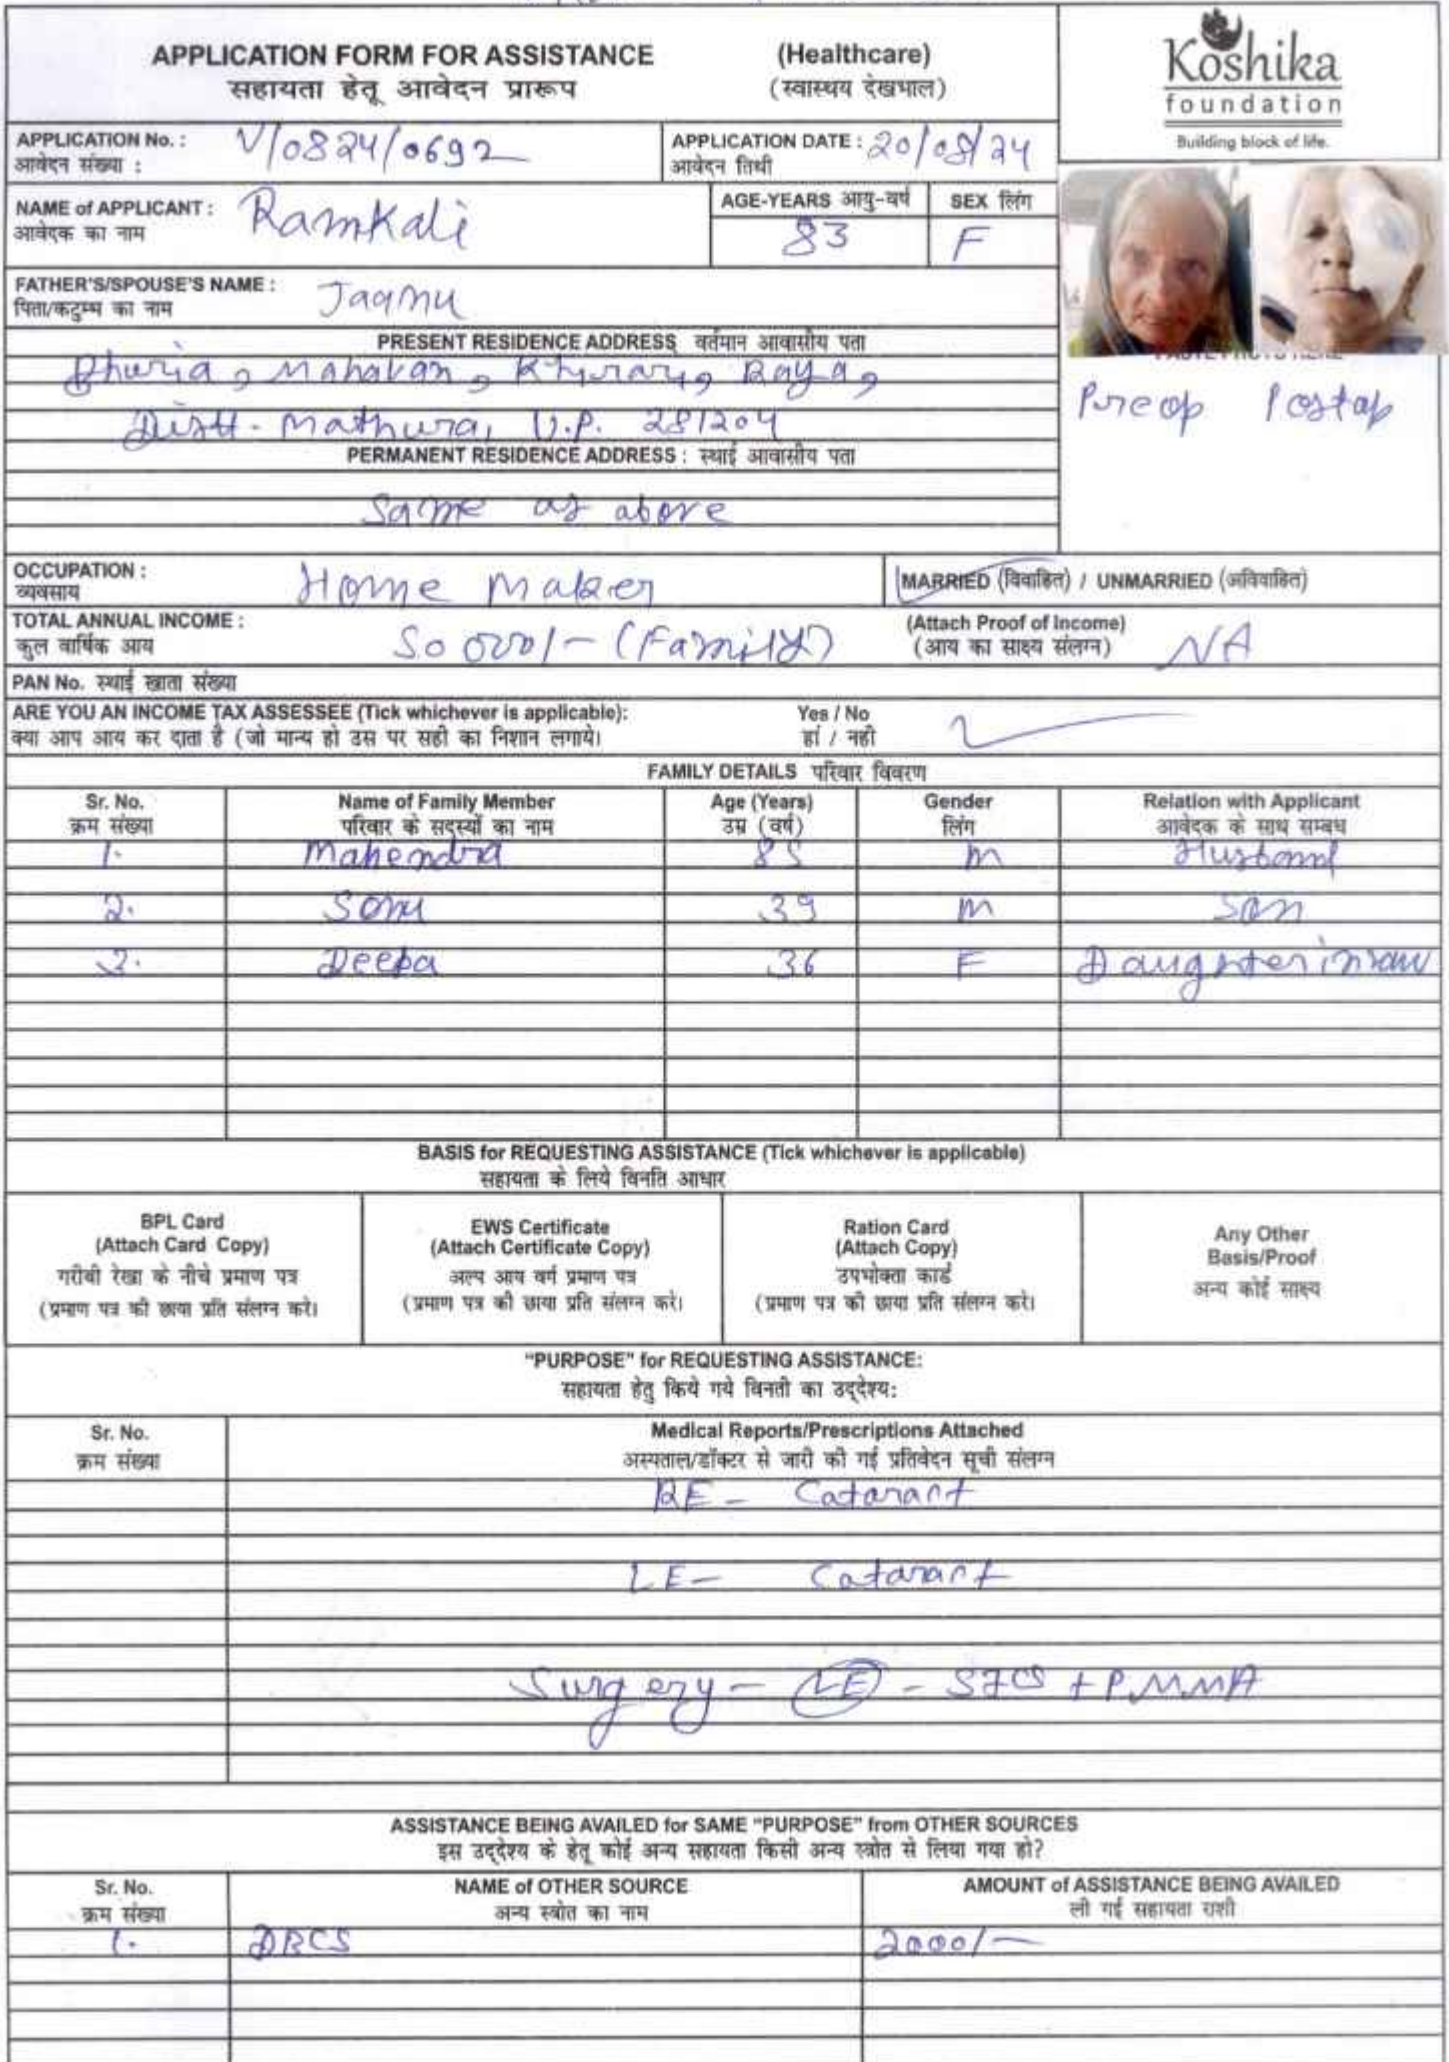 APPLICATION FORM FOR ASSISTANCE (Healthcare)
सहायता हेतू आवेदन प्रारूप (स्वास्थय देखभाल)
Koshika
foundation
Building block of life.
APPLICATION No. : V/0824/0692 APPLICATION DATE : 20/08/24
आवेदन संख्या : आवेदन तिथी
NAME of APPLICANT : Ramkali AGE-YEARS आयु-वर्ष SEX लिंग
आवेदक का नाम 83 F
FATHER'S/SPOUSE'S NAME : Jagmu
पिता/कटुम्ब का नाम
PRESENT RESIDENCE ADDRESS वर्तमान आवासीय पता
Mahavan, Raya,
Distt. Mathura, U.P. 281204
Preop Postop
PERMANENT RESIDENCE ADDRESS : स्थाई आवासीय पता
Same as above
OCCUPATION : Home Maker MARRIED (विवाहित) / UNMARRIED (अविवाहित)
व्यवसाय
TOTAL ANNUAL INCOME : 50000/- (Family) (Attach Proof of Income) NA
कुल वार्षिक आय (आय का साक्ष्य संलग्न)
PAN No. स्थाई खाता संख्या
ARE YOU AN INCOME TAX ASSESSEE (Tick whichever is applicable): Yes / No
क्या आप आय कर दाता है (जो मान्य हो उस पर सही का निशान लगाये। हां / नही
FAMILY DETAILS परिवार विवरण
Sr. No. Name of Family Member Age (Years) Gender Relation with Applicant
क्रम संख्या परिवार के सदस्यों का नाम उम्र (वर्ष) लिंग आवेदक के साथ सम्बध
1. Mahendra 85 M Husband
2. Sonu 39 M Son
3. Deepa 36 F Daughter inlaw
BASIS for REQUESTING ASSISTANCE (Tick whichever is applicable)
सहायता के लिये विनति आधार
BPL Card
(Attach Card Copy)
गरीबी रेखा के नीचे प्रमाण पत्र
(प्रमाण पत्र की छाया प्रति संलग्न करे।
EWS Certificate
(Attach Certificate Copy)
अल्प आय वर्ग प्रमाण पत्र
(प्रमाण पत्र की छाया प्रति संलग्न करे।
Ration Card
(Attach Copy)
उपभोक्ता कार्ड
(प्रमाण पत्र की छाया प्रति संलग्न करे।
Any Other
Basis/Proof
अन्य कोई साक्ष्य
"PURPOSE" for REQUESTING ASSISTANCE:
सहायता हेतु किये गये विनती का उद्देश्य:
Sr. No. Medical Reports/Prescriptions Attached
क्रम संख्या अस्पताल/डॉक्टर से जारी की गई प्रतिवेदन सूची संलग्न
RE - Cataract
LE - Cataract
Surgery - LE - SICS + PMMA
ASSISTANCE BEING AVAILED for SAME "PURPOSE" from OTHER SOURCES
इस उद्देश्य के हेतू कोई अन्य सहायता किसी अन्य स्त्रोत से लिया गया हो?
Sr. No. NAME of OTHER SOURCE AMOUNT of ASSISTANCE BEING AVAILED
क्रम संख्या अन्य स्त्रोत का नाम ली गई सहायता राशी
1. DBCS 2000/-